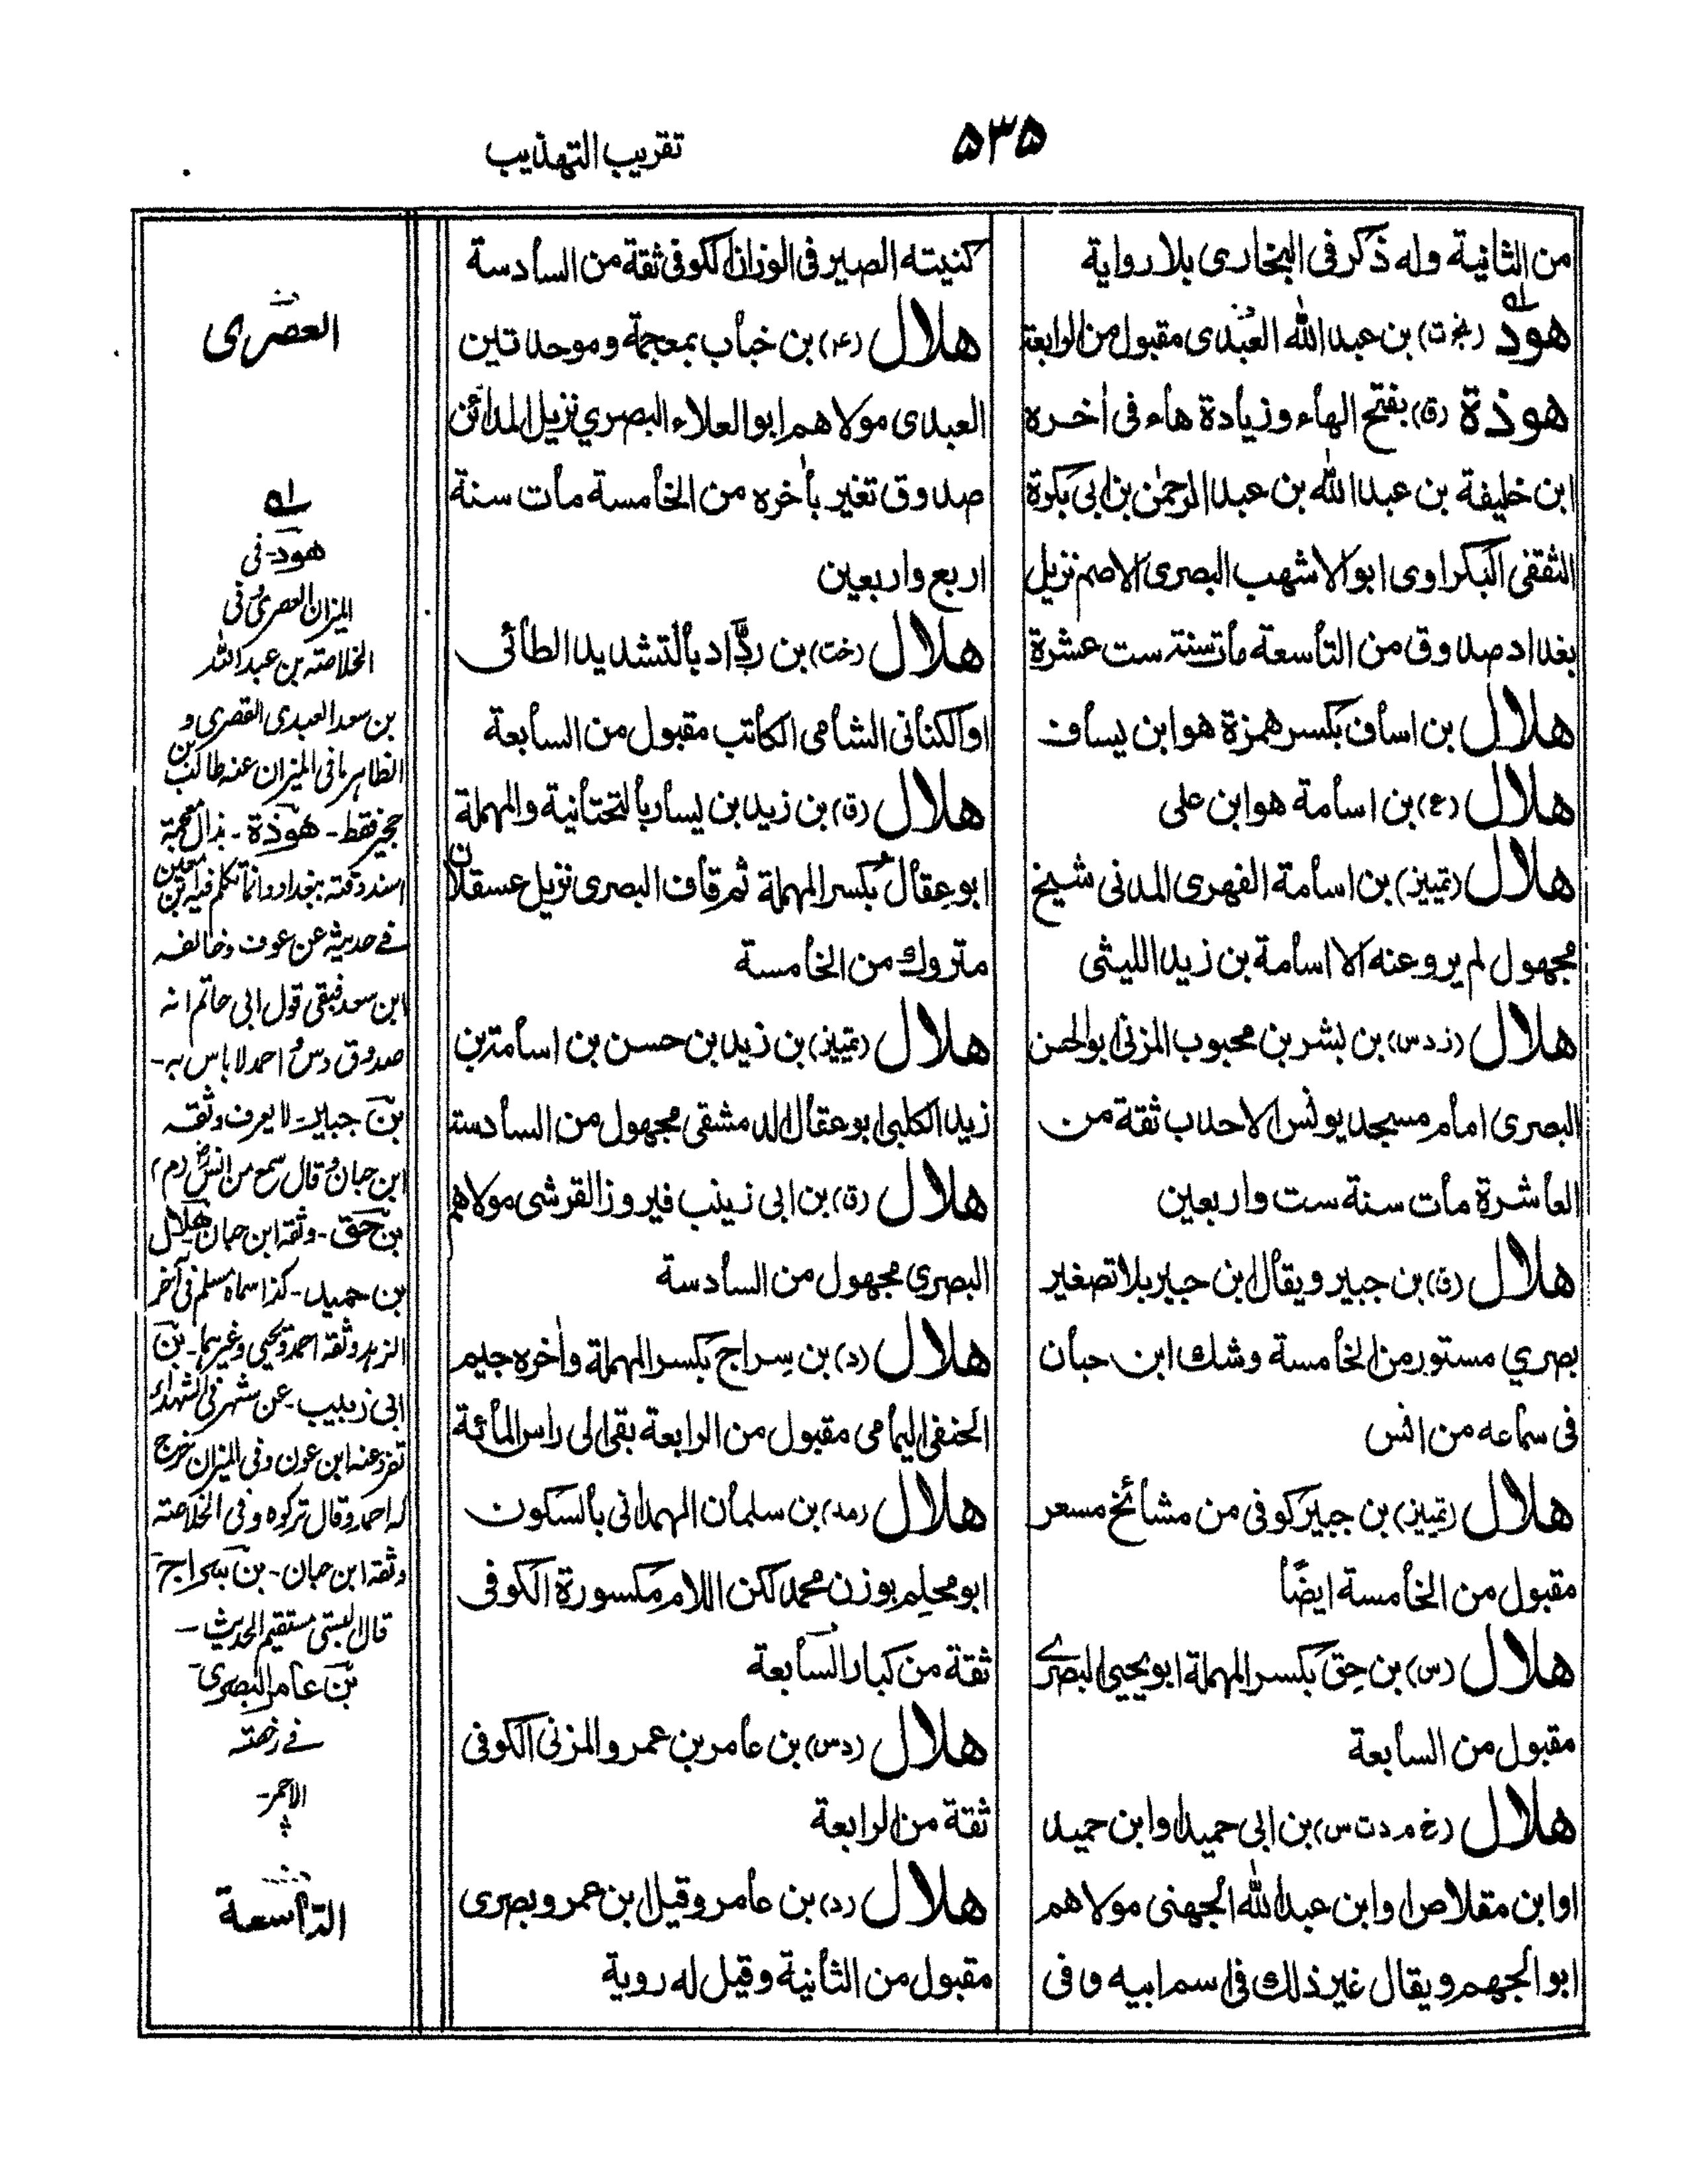 ۵۳۵
تقريب التهذيب
من الثانية وله ذكر فى البخارى بلا رواية
هود (بخ ت) بن عبد الله العبدى مقبول من الرابعة
هوذة (ق) بفتح الهاء وزيادة هاء فى أخره
ابن خليفة بن عبد الله بن عبد الرحمن بن ابى بكرة
الثقفى البكراوى ابو الاشهب البصرى الاصم نزيل
بغداد صدوق من التاسعة مات سنة ست عشرة
هلال بن اساف بكسر همزة هو ابن يساف
هلال (ع) بن اسامة هو ابن على
هلال (تمييز) بن اسامة الفهرى المدنى شيخ
مجهول لم يرو عنه الا اسامة بن زيد الليثى
هلال (ز د س) بن بشر بن محبوب المزنى ابو الحسن
البصرى امام مسجد يونس الاحدب ثقة من
العاشرة مات سنة ست واربعين
هلال (ق) بن جبير ويقال ابن جبير بلا تصغير
بصري مستور من الخامسة وشك ابن حبان
فى سماعه من انس
هلال (تمييز) بن جبير كوفى من مشائخ مسعر
مقبول من الخامسة ايضًا
هلال (س) بن حِق بكسر المهملة ابو يحيى البصرے
مقبول من السابعة
هلال (خ م د ت س) بن ابى حميد او ابن حميد
او ابن مقلاص او ابن عبد الله الجهنى مولاهم
ابو الجهم ويقال غير ذلك فى اسم ابيه و فى
كنيته الصيرفى الوزان الكوفى ثقة من السادسة
هلال (۴) بن خباب بمعجمة وموحدتين
العبدى مولاهم ابو العلاء البصري نزيل المدائن
صدوق تغير بأخره من الخامسة مات سنة
اربع واربعين
هلال (خت) بن ردَّاد بالتشديد الطائى
او الكنانى الشامى الكاتب مقبول من السابعة
هلال (ق) بن زيد بن يسار بالتحتانية والمهملة
ابو عِقال بكسر المهملة ثم قاف البصرى نزيل عسقلان
متروك من الخامسة
هلال (تمييز) بن زيد بن حسن بن اسامة بن
زيد الكلبى ابو عقال الدمشقى مجهول من السادسة
هلال (ق) بن ابى زينب فيروز القرشى مولاهم
البصري مجهول من السادسة
هلال (د) بن سِراج بكسر المهملة وأخره جيم
الحنفى اليمامى مقبول من الرابعة بقى الى راس المائة
هلال (مد) بن سلمان الهمدانى بالسكون
ابو محلِم بوزن محمد لكن اللام مكسورة الكوفى
ثقة من كبار السابعة
هلال (د س) بن عامر بن عمرو المزنى الكوفى
ثقة من الرابعة
هلال (د) بن عامر وقيل ابن عمرو بصرى
مقبول من الثانية وقيل له روية
العصرى
له
هود - فى
الميزان العصرى و فى
الخلاصة بن عبد الله
بن سعد العبدى القصرى و
الظاهر ما فى الميزان عنه طالب بن
حجير فقط - هوذة - بذال معجمة
اسند وقته ببغداد وانما تكلم فيه ابن معين
فے حديثه عن عوف وخالفه
ابن سعد فبقى قول ابى حاتم انه
صدوق و س احمد لا باس به -
بن جبير - لا يعرف وثقه
ابن حبان و قال سمع من انس رض (م)
بن حق - وثقه ابن حبان هلال
بن حميد - كذا سماه مسلم فى آخر
الزهد وثقه احمد و يحيى وغيرهما - بن
ابى زينب - عن شهر فى الشهداء
تفرد عنه ابن عون و فى الميزان خرج
له احمد وقال تركوه و فى الخلاصة
وثقه ابن حبان - بن سراج
قال البستى مستقيم الحديث -
بن عامر البصرى
الاحمر -
التاسعة